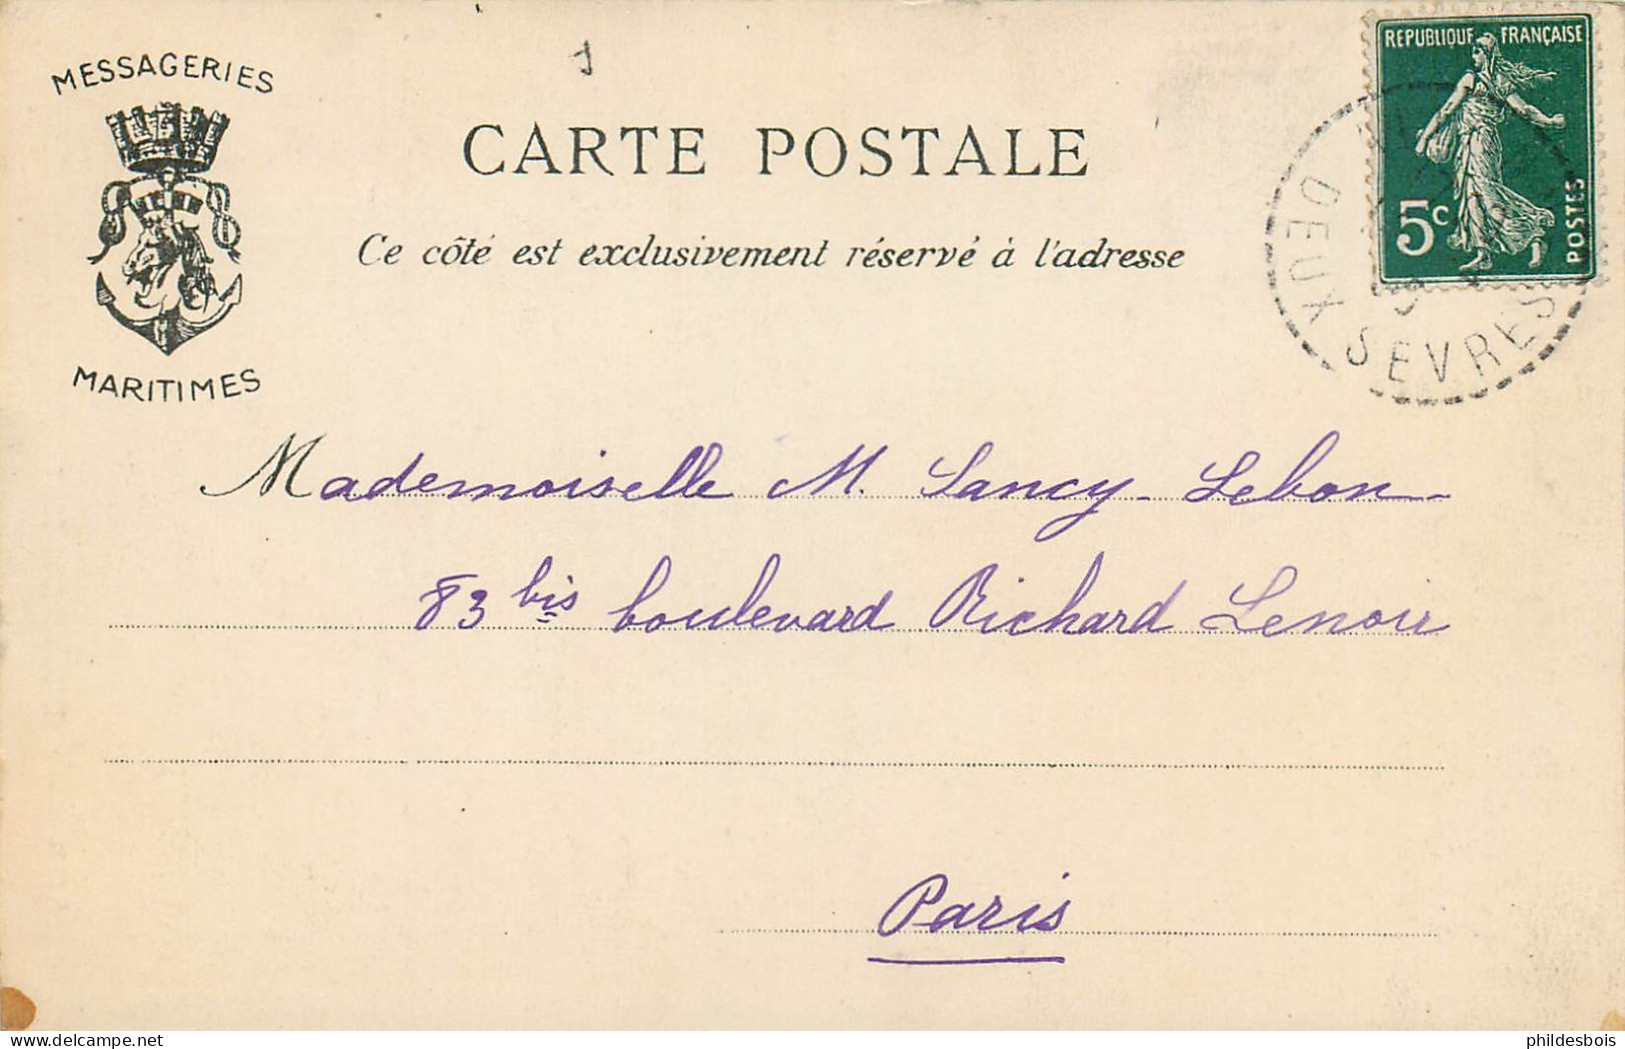 MESSAGERIES
MARITIMES
CARTE POSTALE
Ce côté est exclusivement réservé à l'adresse
REPUBLIQUE FRANÇAISE
5c
POSTES
DEUX SEVRES
Mademoiselle M. Sancy-Lebon
83 bis boulevard Richard Lenoir
Paris
phildesbois